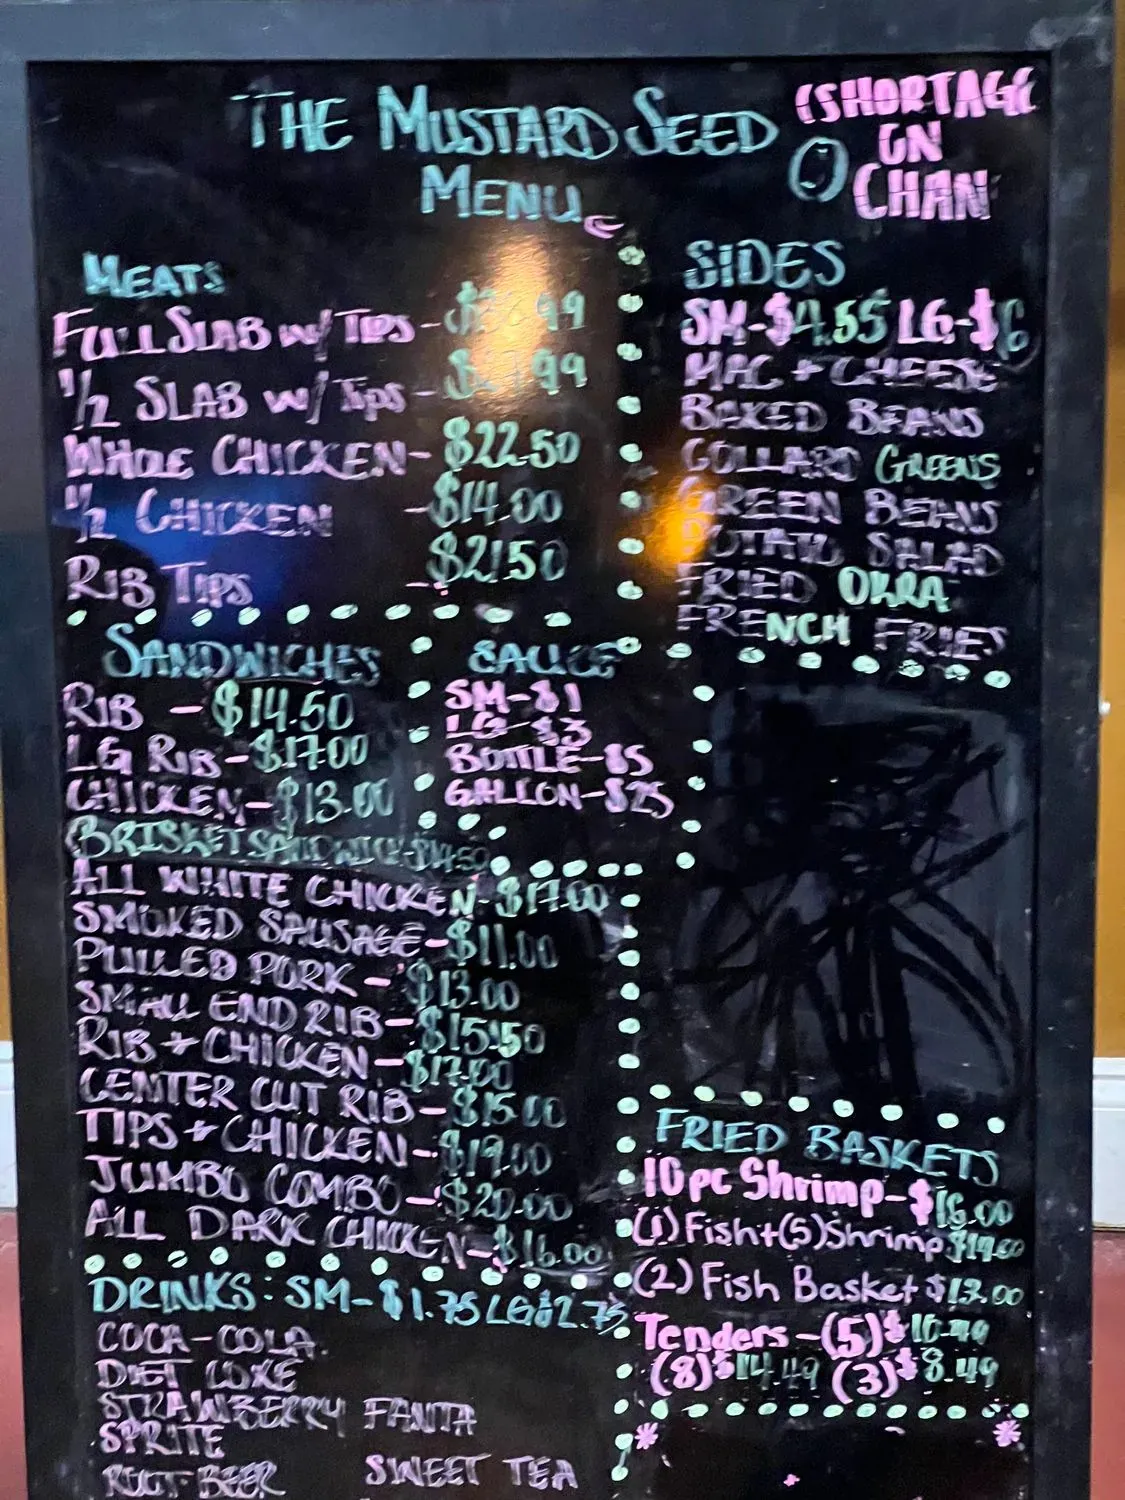 THE MUSTARD SEED
MENU
(SHORTAGE
ON
CHAN
MEATS
FULL SLAB w/ TIPS -
1/2 SLAB w/ Tips -
WHOLE CHICKEN - $22.50
1/2 CHICKEN - $14.00
RIB TIPS - $21.50
SIDES
SM-$4.55 LG-$6
MAC + CHEESE
BAKED BEANS
COLLARD GREENS
GREEN BEANS
POTATO SALAD
FRIED OKRA
FRENCH FRIES
SANDWICHES
RIB - $14.50
LG RIB - $17.00
CHICKEN - $13.00
BRISKET SANDWICH $14.50
ALL WHITE CHICKEN - $17.00
SMOKED SAUSAGE - $11.00
PULLED PORK - $13.00
SMALL END RIB - $15.50
RIB + CHICKEN - $17.00
CENTER CUT RIB - $15.00
TIPS + CHICKEN - $19.00
JUMBO COMBO - $20.00
ALL DARK CHICKEN - $16.00
SAUCE
SM-$1
LG-$3
BOTTLE-$5
GALLON-$25
DRINKS: SM-$1.75 LG $2.75
COCA-COLA
DIET COKE
STRAWBERRY FANTA
SPRITE
ROOT BEER SWEET TEA
FRIED BASKETS
10pc Shrimp - $16.00
(1) Fish + (5) Shrimp
(2) Fish Basket $13.00
Tenders - (5) $10.49
(8) $14.49 (3) $8.49